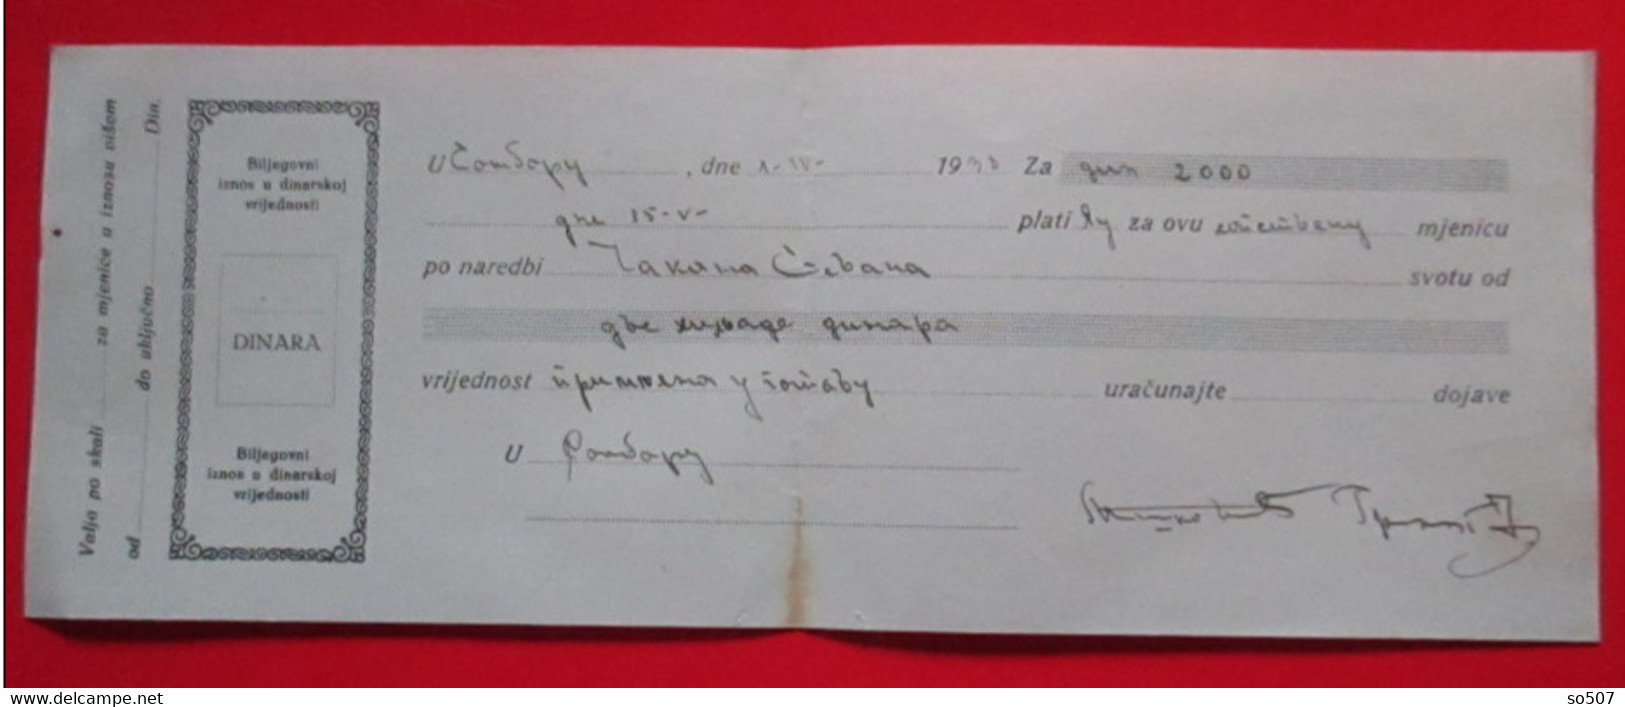 Valja po skali za mjenice u iznosu višom
od do uključno Din.
Biljegovni
iznos u dinarskoj
vrijednosti
DINARA
Biljegovni
iznos u dinarskoj
vrijednosti
U Сомбору, dne 1-IV- 19 Za дин 2000
дне 15-V- plati za ovu мјеницu mjenicu
po naredbi svotu od
две хиљаде динара
vrijednost примљена у готову uračunajte dojave
U Сомбору
www.delcampe.net
so507